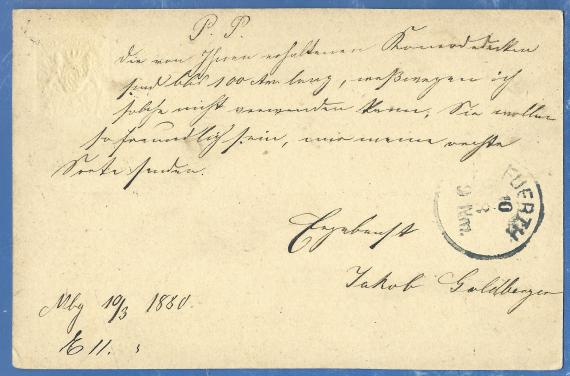 P. P.
Die von Ihnen erhaltenen
sind bis 100 lang, weßwegen ich
solche nicht verwenden kann, Sie wollen
so freundlich sein, mir meine rechte
Sorte senden.
Ergebenst
Jakob Goldberger
Mbg 10/3 1880.
E 11.
FUERTH
10
3
9 Nm.